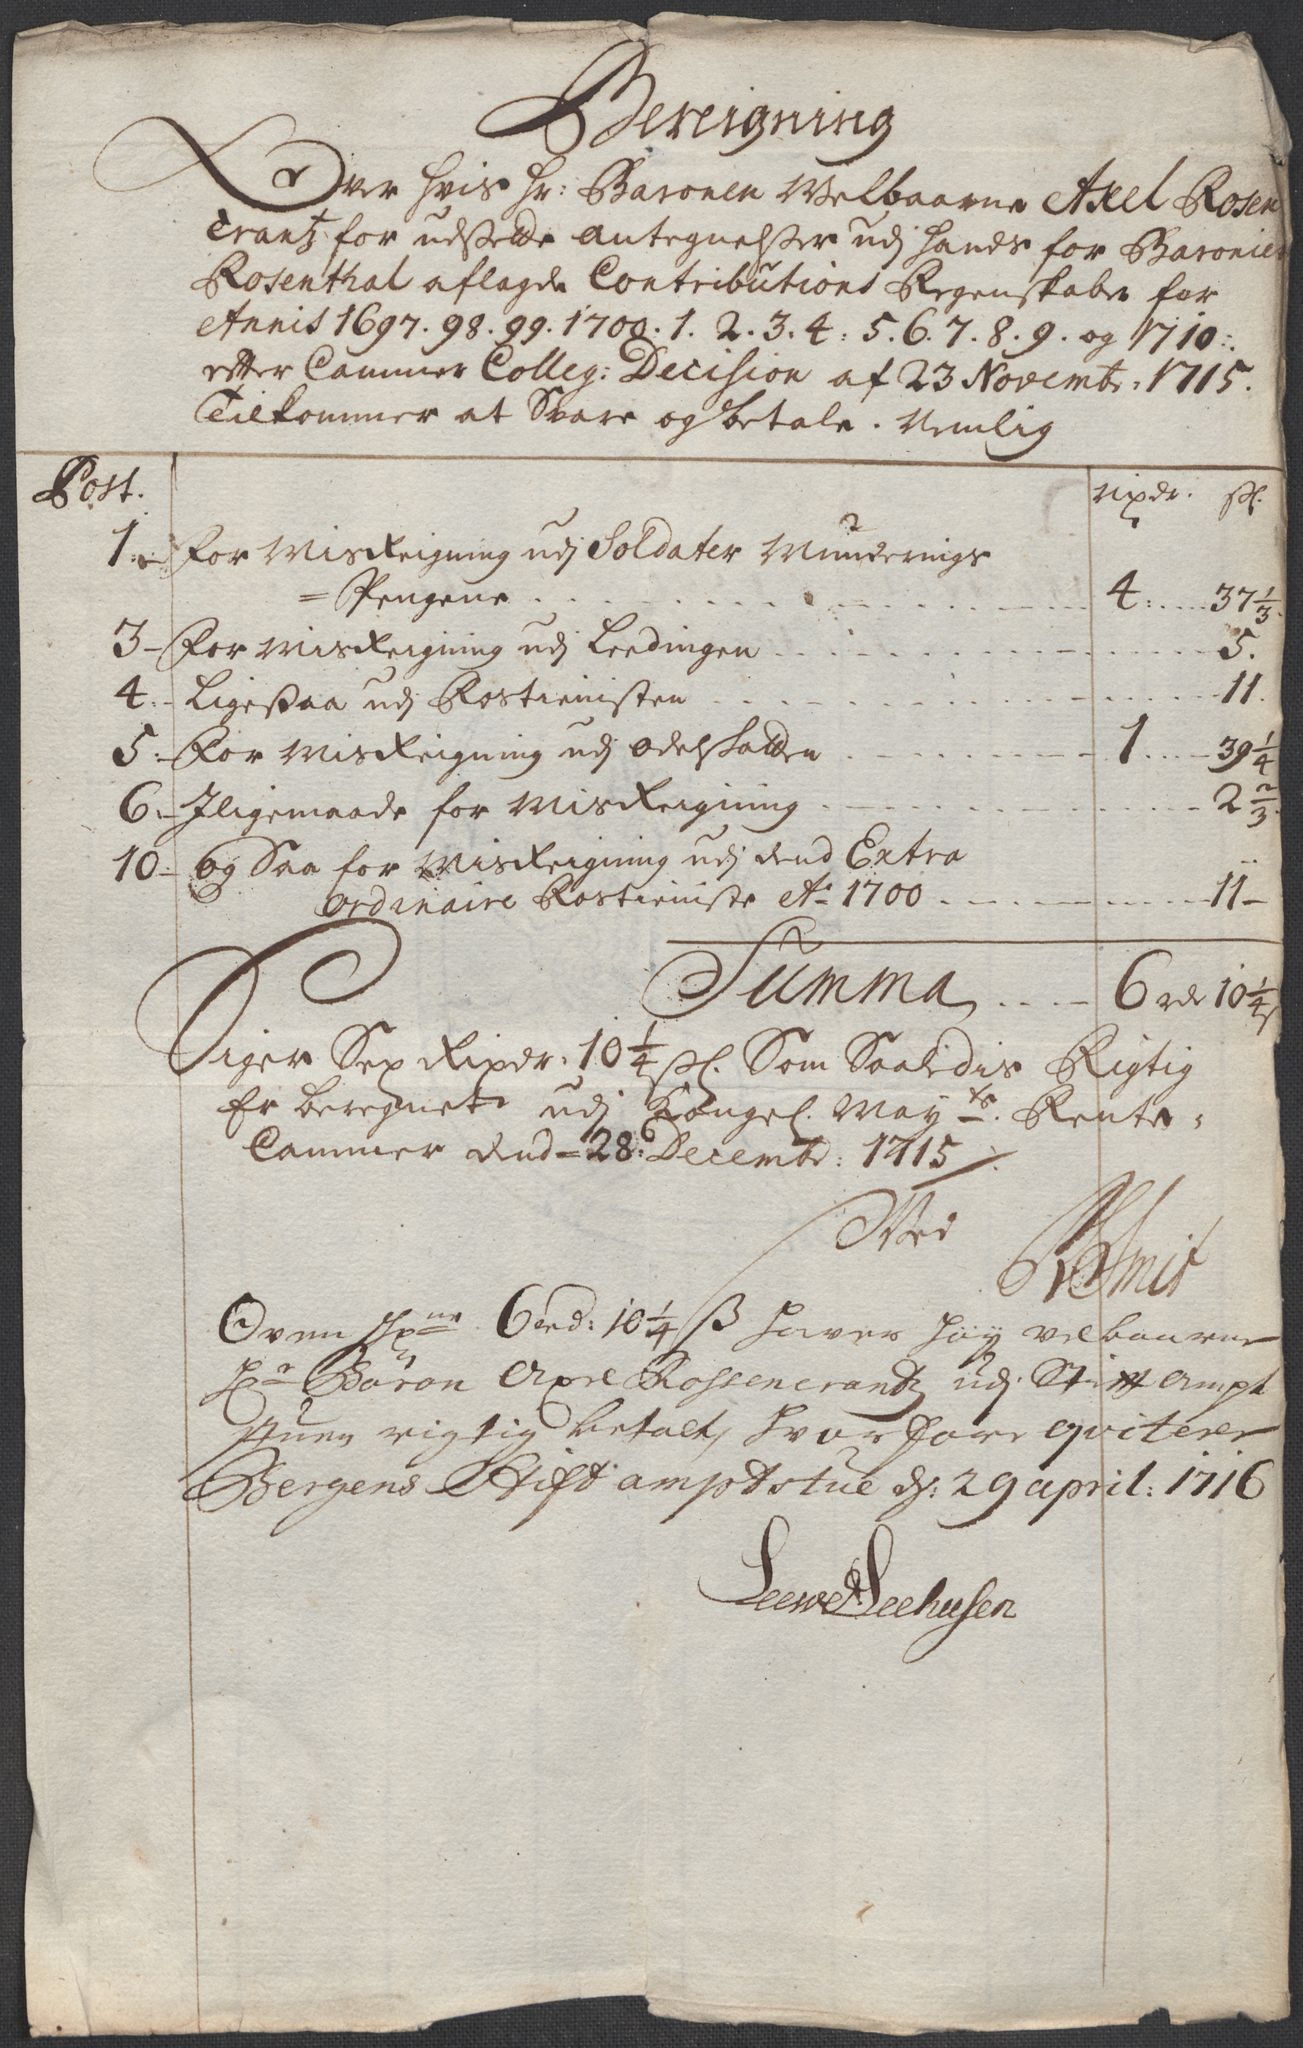 Bereigning
Over hvis Hr: Baronen Welbaarne Axel Rosen
Crantz for udstædte Antegnelsser udj hands for Baroniet
Rosenthal aflagde Contributions Regenskaber for
Annis 1697. 98. 99. 1700. 1. 2. 3. 4: 5. 6. 7. 8. 9. og 1710:
etter Cammer Colleg: Decision af 23 Novembr: 1715.
Tilkommer at Svare og betale. Nemlig
Post. Rixdr. ſſ.
1. For Misreigning udj Soldater Munderings
= Pengene 4: 37 1/3
3 - For Misreigning udj Leedingen 5.
4. - Ligesaa udj Rostienisten 11.
5: - For Misreigning udj Odelskatten 1 39 1/4
6 - Iligemaade for Misreigning 2 2/3
10 - og Saa for Misreigning udj dend Extra
ordinaire Rostieniste Ao 1700 11 -
Summa 6 rdr 10 1/4 ſ
Siger Sex Rixdr: 10 1/4 ſſ. Som Saaledis Rigtig
Er beregnet udj Kongel. Mayts. Rente-
Cammer dend = 28: Decembr: 1715
Ved
Smit
Oven 6 rd: 10 1/4 ß haver Høy velbaarne
Hr Baron Axel Rossencrandtz udj Stift Ampt
stuen rigtig betalt, hvorfore qviterer
Bergens Stift amptstue d: 29 april: 1716
Leewe Leehusen